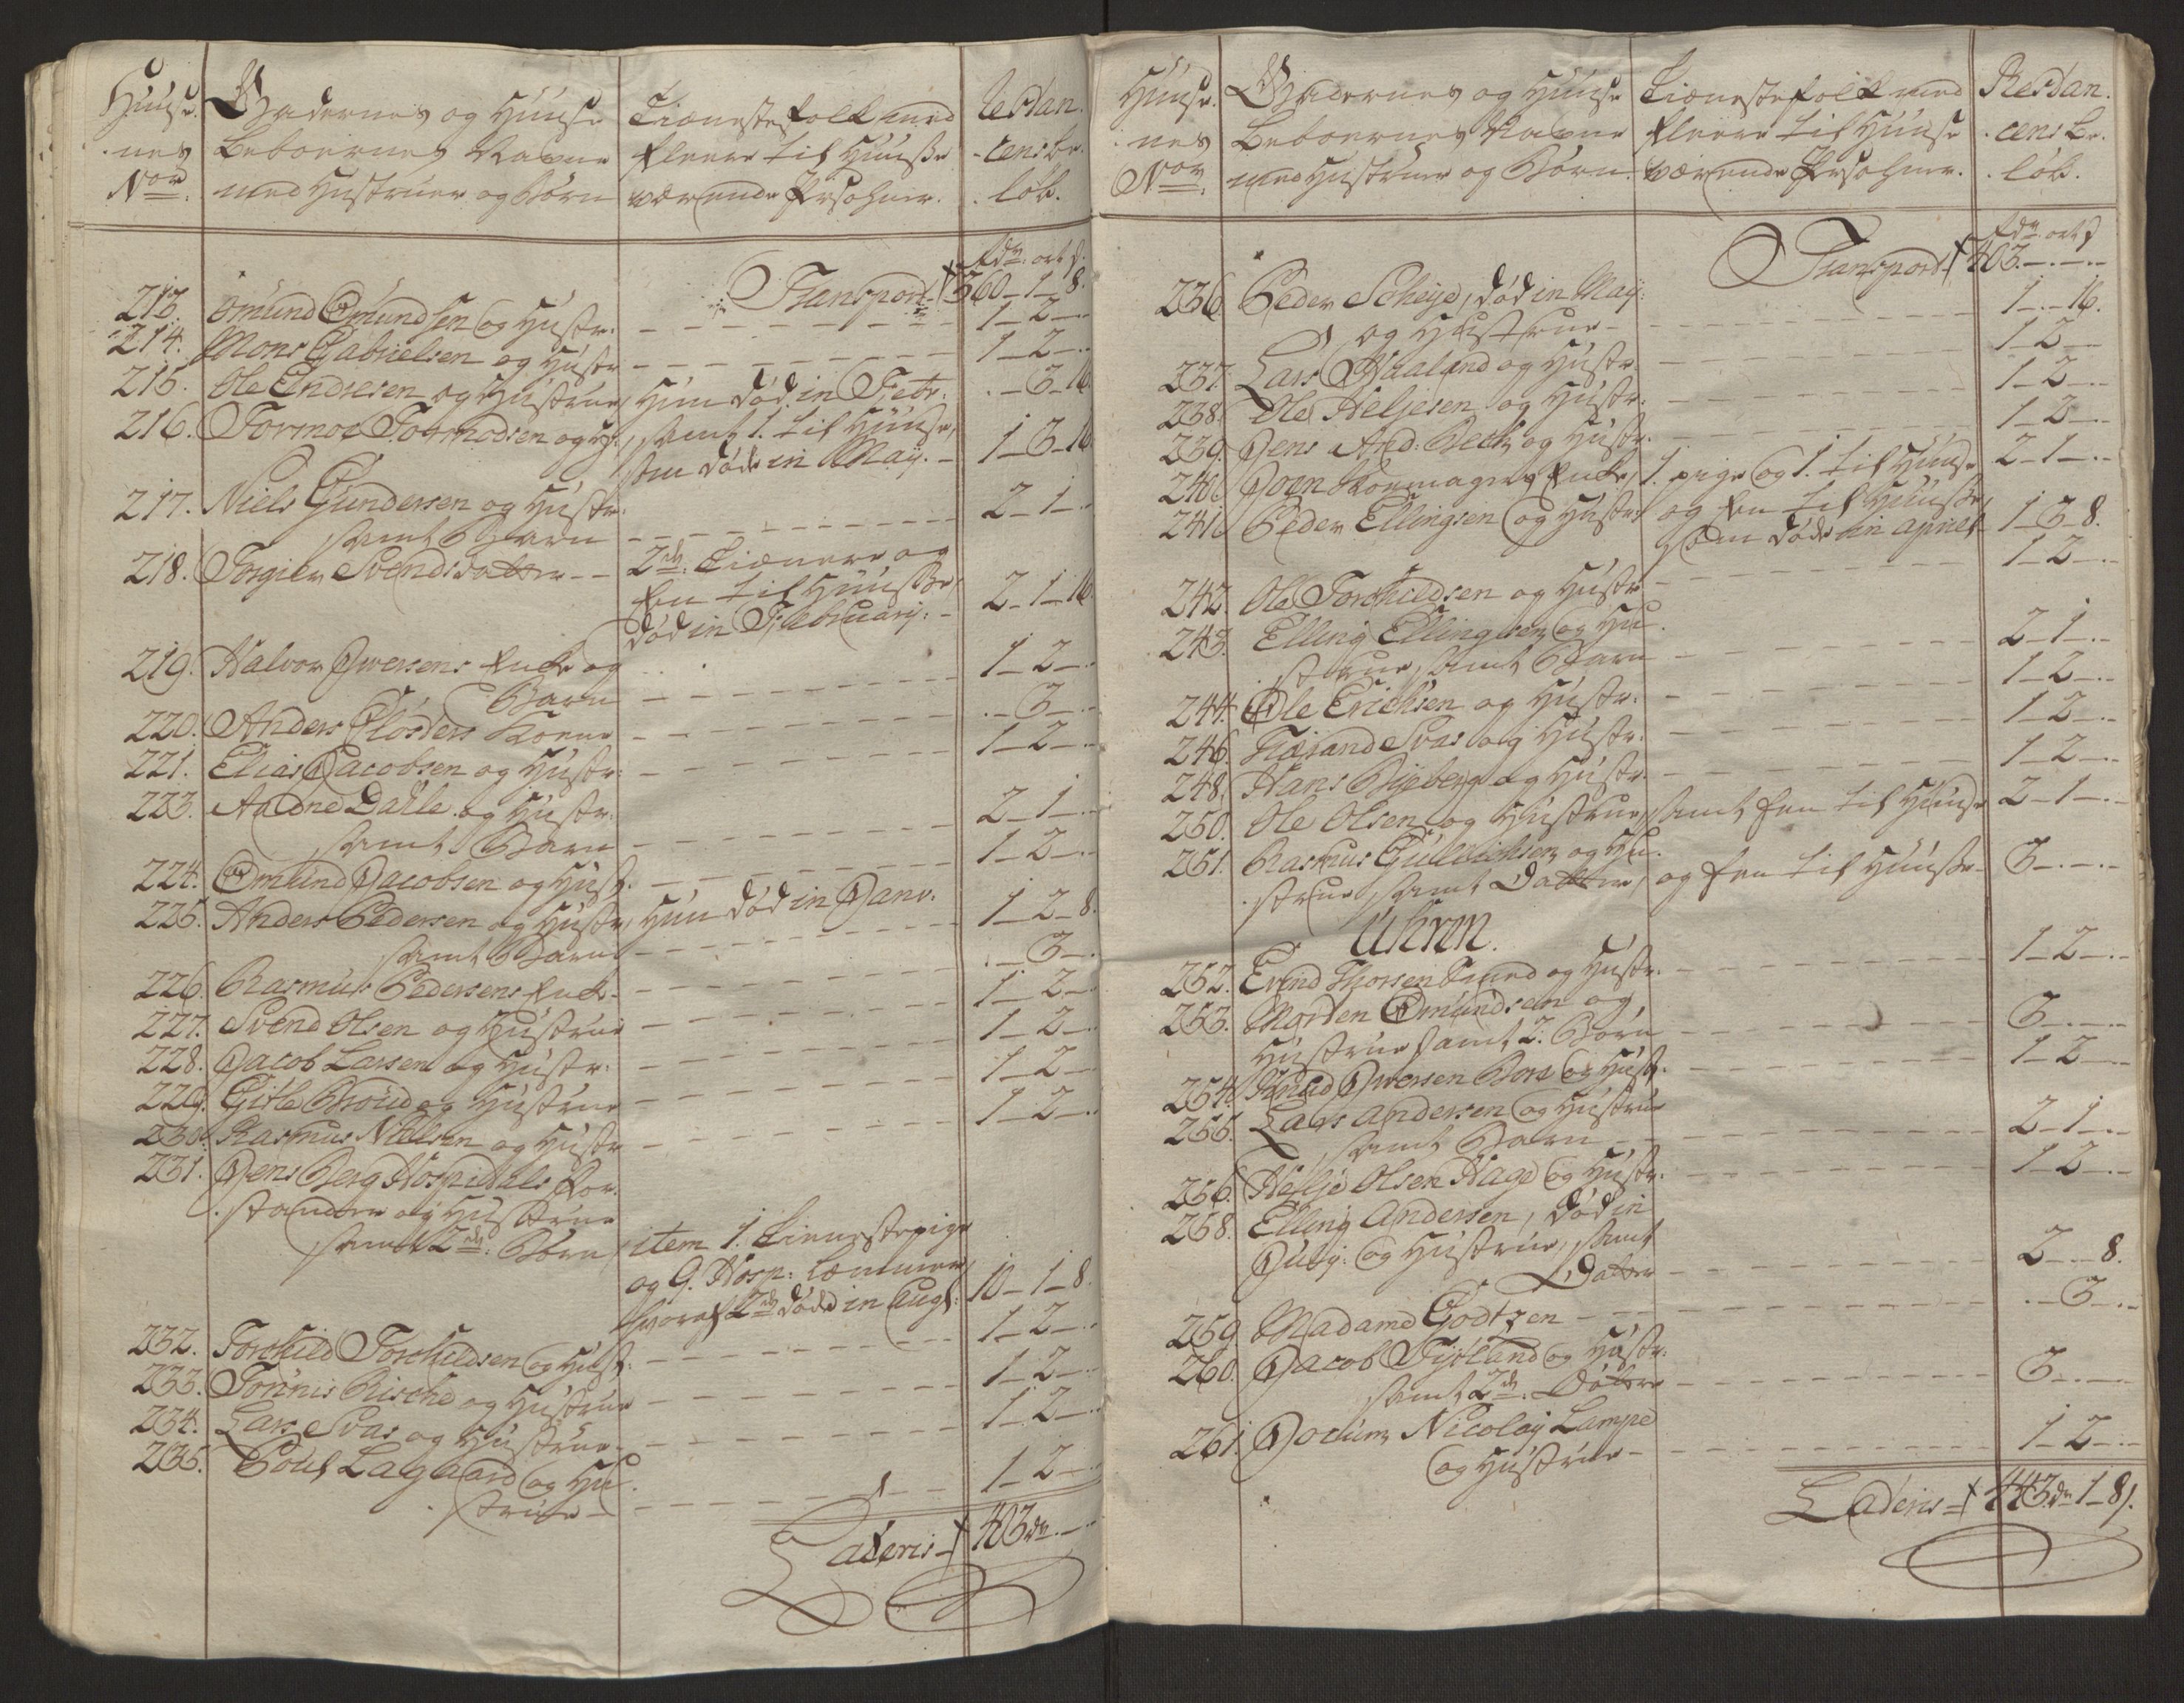 Huuse-
nes
Nor.
Gadernes og Huuse
Beboernes Navne
med Hustruer og Börn
Tienestefolk med
fleere til Huuse
værende Persohner.
Restan-
cens be-
löb.
Rdr. ort s.
Transport 360-1-8.
213. Omund Omundsen og Hustr: 1-2-
214. Mons Gabrielsen og Hustr 1-2-
215. Ole Endresen og Hustrue, Hun död in Febr: -3-16
216. Tormoe Tormodsen og H:, samt 1. til Huuse,
som döde in Maij. 1-3-16
217. Niels Gundersen og Hustr:
samt Barn 2-1-
218. Torgier Svendsdatter 2de Tienere og
een til Huuse,
död in Februarij. 2-1-16
219. Halvor Iversens Enke og
Barn 1-2-
220. Anders Closters Kone -3-
221. Elias Jacobsen og Hustr: 1-2-
223. Aadne Dahle og Hustr:
samt Barn 2-1-
224. Omund Jacobsen og Hust. 1-2-
225. Anders Pedersen og Hustr, Hun död in Janv.
samt Barn 1-2-8.
226. Rasmus Pedersens Enke -3-
227. Svend Olsen og Hustrue 1-2-
228. Jacob Larsen og Hustr: 1-2-
229. Gitle Broüd og Hustrue 1-2-
230. Rasmus Nielsen og Hustr 1-2-
231. Jens Berg Hospitals for-
stander og Hustrue
samt 2de Börn, item 1. Tienestepige
og 9. Hosp: Lemmer,
hvoraf 2de döde in Aug: 10-1-8
232. Torchild Torchildsen og Hust: 1-2-
233. Tönnis Rische og Hustrue 1-2-
234. Lars Svas og Hustrue 1-2-
235. Poul Lagaard og Hu-
strue 1-2-
Lateris 403 dr.
Huuse-
nes
Nor.
Gadernes og Huuse
Beboernes Navne
med Hustruer og Börn.
Tienestefolk med
fleere til Huuse
værende Persohner.
Restan-
cens be-
löb.
Rdr. ort s
Transport 403.
236. Peder Scheye, död in Maij:
og Hustrue 1-16.
237. Lars Haaland og Hustr: 1-2-
238. Ole Heljesen og Hustr: 1-2-
239. Jens And: Beck og Hustr: 1-2-
240. Joen Skoemagers Enke, 1. pige og 1. til Huuse 2-1-
241. Peder Ellingsen og Hustr og een til Huuse,
som döde in april 1-3-8.
242. Ole Torchildsen og Hustr 1-2-
243. Elling Ellingsen og Hu-
strue, samt Barn 2-1-
244. Ole Erichsen og Hustr: 1-2-
246. Tiærand Svas og Hustr: 1-2-
248. Hans Byeberg og Hustr: 1-2-
250. Ole Olsen og Hustrue, samt een til Huuse 2-1-
251. Rasmus Gulliksen og Hu-
strue samt Datter, og een til Huuse 3-
Uhren.
252. Evind Thorsen Tuned og Hustr: 1-2-
253. Morten Omundsen og
Hustrue samt 2. Börn 3-
254. Knud Iversen Bore og Hust. 1-2-
255. Lars Andersen og Hustrue
samt Barn 2-1-
256. Helje Olsen Hage og Hustr. 1-2-
258. Elling Andersen, död in
Julij: og Hustrue, samt
Datter 2-8.
259. Madame Godtzen -3-
260. Jacob Tytland og Hustr:
samt 2de Döttre 3-
261. Jochum Nicolaj Lampe
og Hustrue 1-2-
Lateris 443 dr 1-8s.